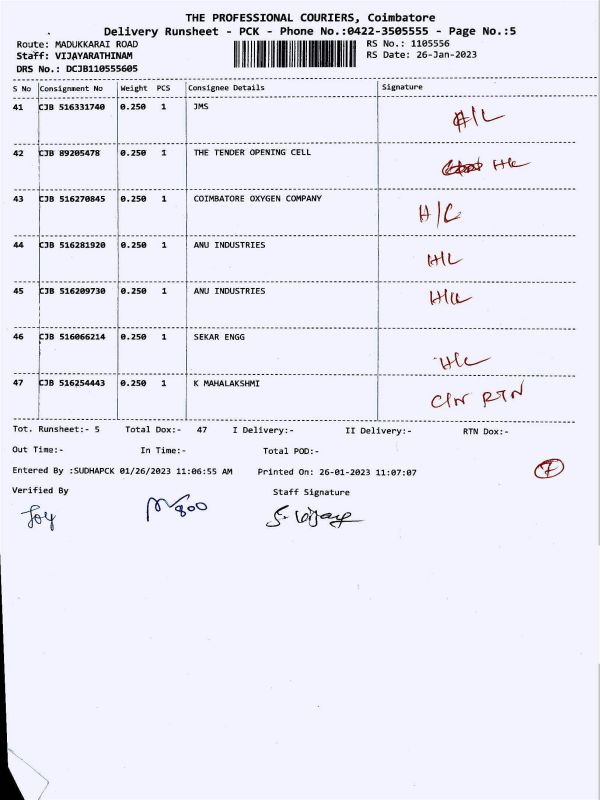 THE PROFESSIONAL COURIERS, Coimbatore
Delivery Runsheet - PCK - Phone No.:0422-3505555 - Page No.:5
Route: MADUKKARAI ROAD RS No.: 1105556
Staff: VIJAYARATHINAM RS Date: 26-Jan-2023
DRS No.: DCJB110555605
S No Consignment No Weight PCS Consignee Details Signature
41 CJB 516331740 0.250 1 JMS
42 CJB 89205478 0.250 1 THE TENDER OPENING CELL
43 CJB 516270845 0.250 1 COIMBATORE OXYGEN COMPANY
44 CJB 516281920 0.250 1 ANU INDUSTRIES
45 CJB 516209730 0.250 1 ANU INDUSTRIES
46 CJB 516066214 0.250 1 SEKAR ENGG
47 CJB 516254443 0.250 1 K MAHALAKSHMI RTN
Tot. Runsheet:- 5 Total Dox:- 47 I Delivery:- II Delivery:- RTN Dox:-
Out Time:- In Time:- Total POD:-
Entered By :SUDHAPCK 01/26/2023 11:06:55 AM Printed On: 26-01-2023 11:07:07
7
Verified By Staff Signature
Joy S. Vijay